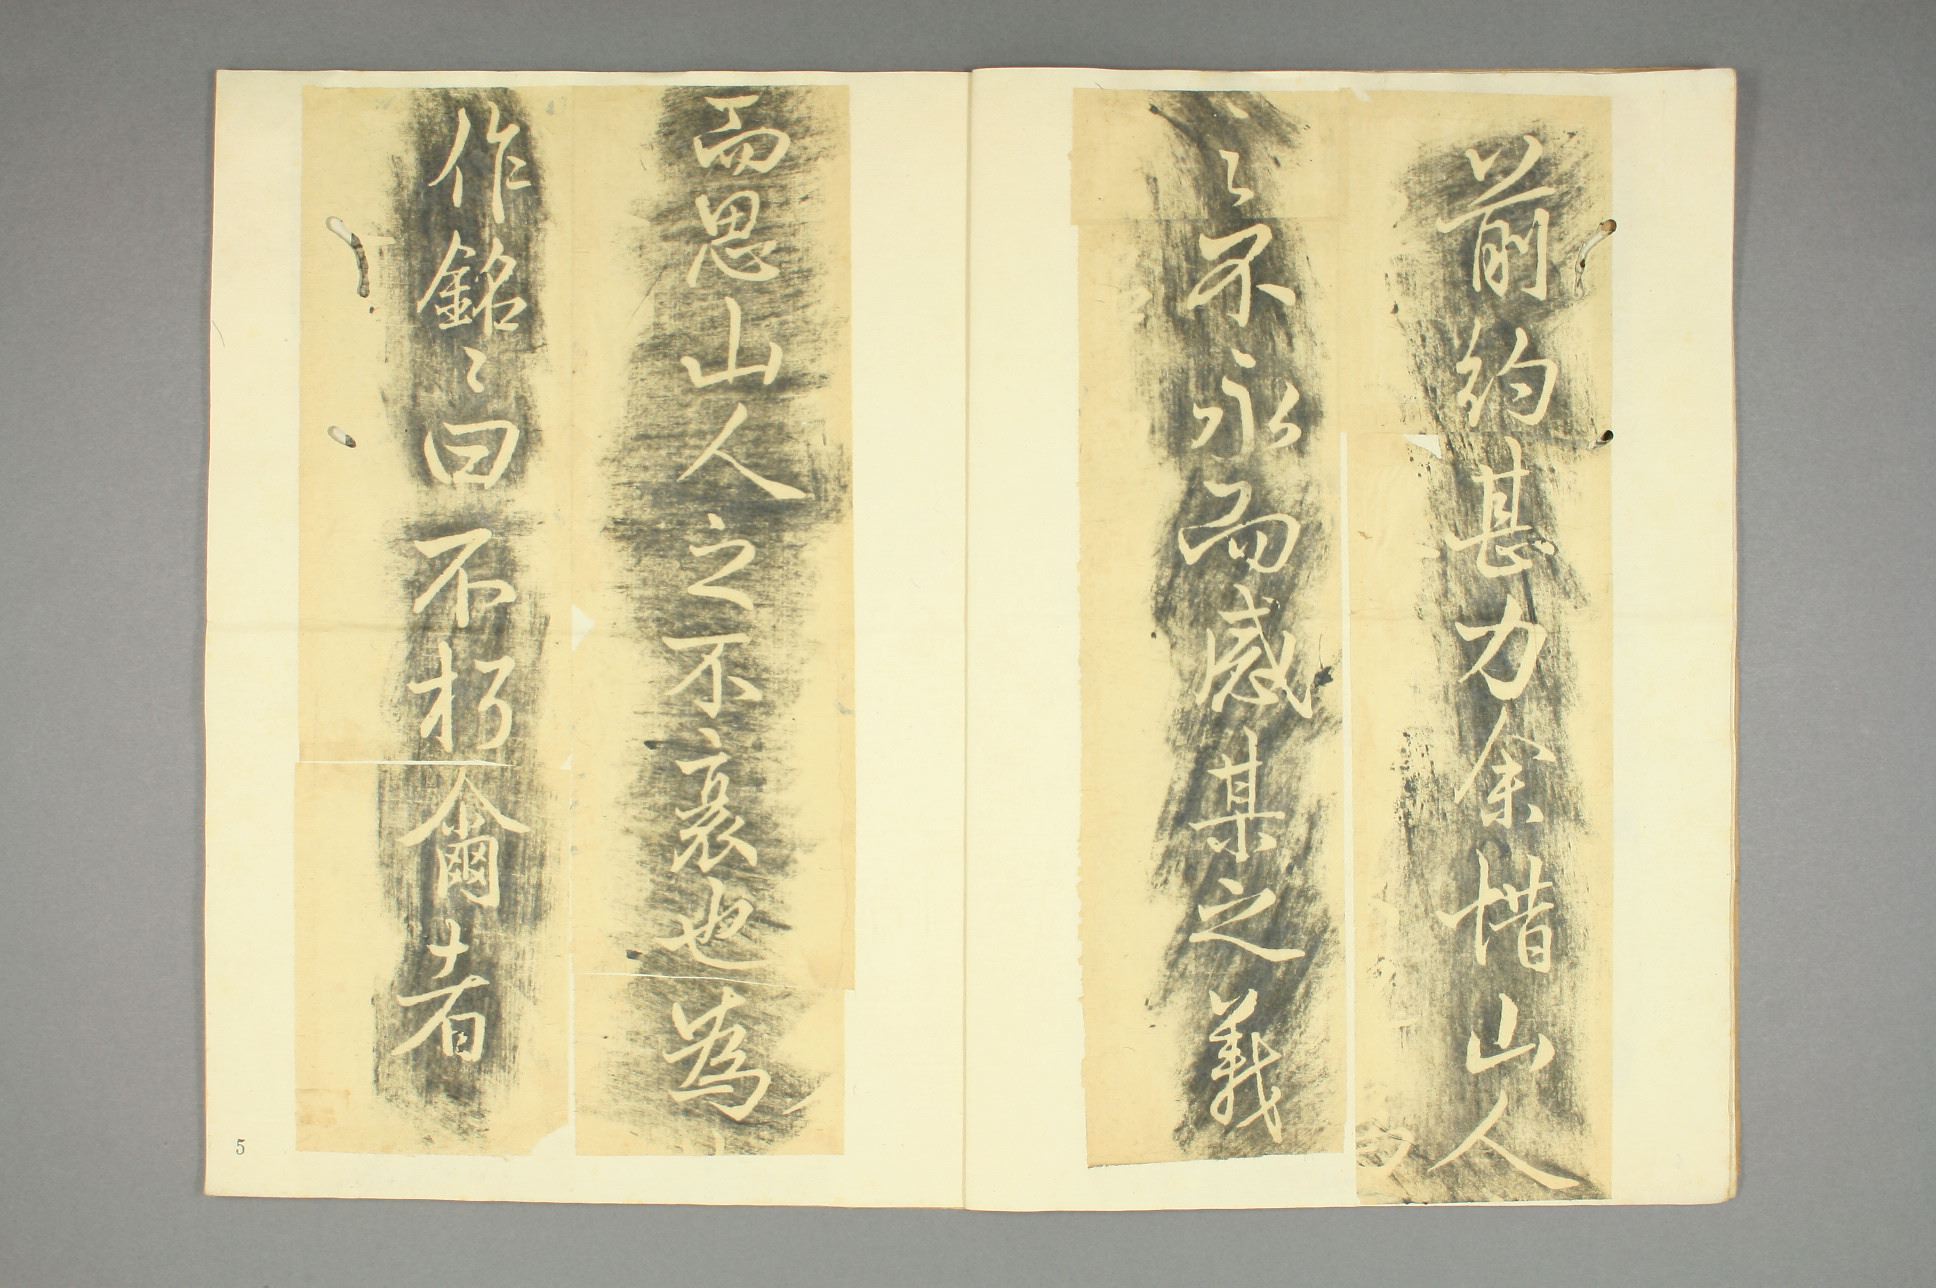 前約甚力余惜山人
々々不永而感某之義
而思山人之不衰也為
作銘々曰不朽爾者
5